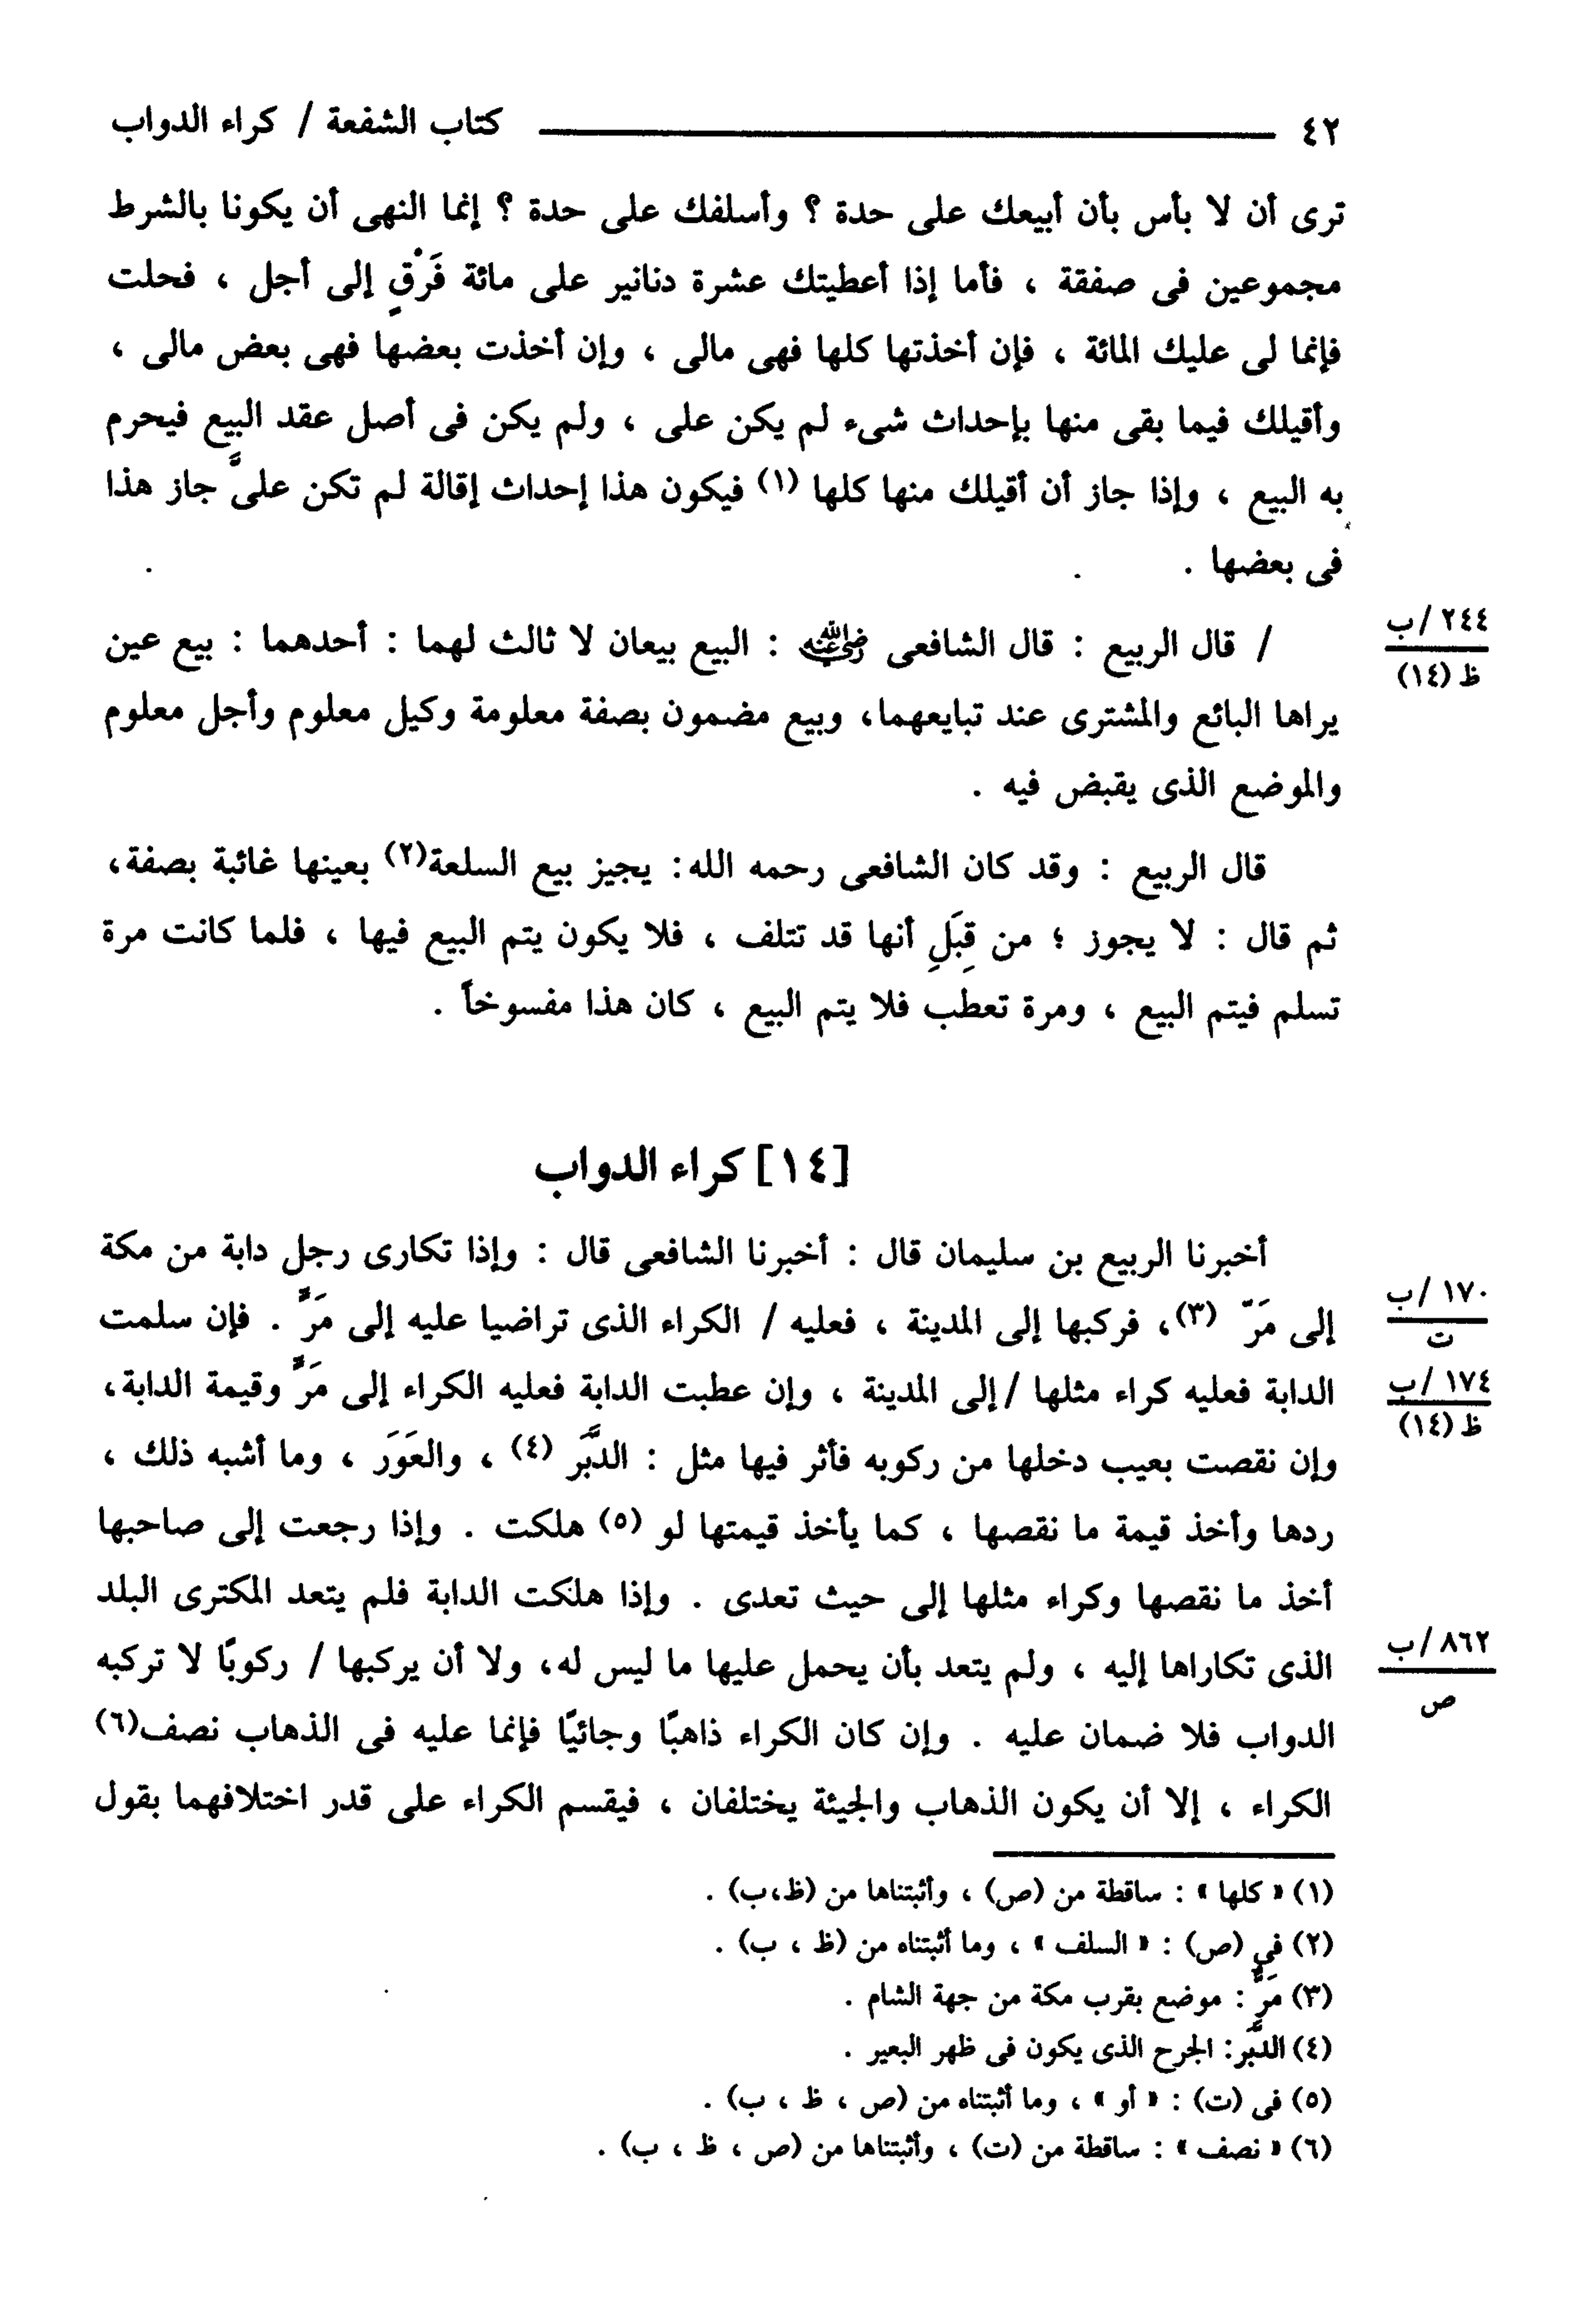 ٤٢ كتاب الشفعة / كراء الدواب
ترى أن لا بأس بأن أبيعك على حدة ؟ وأسلفك على حدة ؟ إنما النهى أن يكونا بالشرط
مجموعين فى صفقة ، فأما إذا أعطيتك عشرة دنانير على مائة فَرْقٍ إلى أجل ، فحلت
فإنما لى عليك المائة ، فإن أخذتها كلها فهى مالى ، وإن أخذت بعضها فهى بعض مالى ،
وأقيلك فيما بقى منها بإحداث شىء لم يكن على ، ولم يكن فى أصل عقد البيع فيحرم
به البيع ، وإذا جاز أن أقيلك منها كلها (١) فيكون هذا إحداث إقالة لم تكن علىَّ جاز هذا
فى بعضها .
٢٤٤ /ب
ظ (١٤)
/ قال الربيع : قال الشافعى رضي الله عنه : البيع بيعان لا ثالث لهما : أحدهما : بيع عين
يراها البائع والمشترى عند تبايعهما، وبيع مضمون بصفة معلومة وكيل معلوم وأجل معلوم
والموضع الذى يقبض فيه .
قال الربيع : وقد كان الشافعى رحمه الله: يجيز بيع السلعة(٢) بعينها غائبة بصفة،
ثم قال : لا يجوز ؛ من قِبَلِ أنها قد تتلف ، فلا يكون يتم البيع فيها ، فلما كانت مرة
تسلم فيتم البيع ، ومرة تعطب فلا يتم البيع ، كان هذا مفسوخاً .
[١٤] كراء الدواب
أخبرنا الربيع بن سليمان قال : أخبرنا الشافعى قال : وإذا تكارى رجل دابة من مكة
١٧٠ /ب
ت
إلى مَرّ (٣)، فركبها إلى المدينة ، فعليه / الكراء الذى تراضيا عليه إلى مَرٍّ . فإن سلمت
١٧٤ /ب
ظ (١٤)
الدابة فعليه كراء مثلها /إلى المدينة ، وإن عطبت الدابة فعليه الكراء إلى مَرٍّ وقيمة الدابة،
وإن نقصت بعيب دخلها من ركوبه فأثر فيها مثل : الدَّبَر (٤) ، والعَوَر ، وما أشبه ذلك ،
ردها وأخذ قيمة ما نقصها ، كما يأخذ قيمتها لو (٥) هلكت . وإذا رجعت إلى صاحبها
أخذ ما نقصها وكراء مثلها إلى حيث تعدى . وإذا هلكت الدابة فلم يتعد المكترى البلد
٨٦٢ /ب
ص
الذى تكاراها إليه ، ولم يتعد بأن يحمل عليها ما ليس له، ولا أن يركبها / ركوبًا لا تركبه
الدواب فلا ضمان عليه . وإن كان الكراء ذاهبًا وجائيًا فإنما عليه فى الذهاب نصف(٦)
الكراء ، إلا أن يكون الذهاب والجيئة يختلفان ، فيقسم الكراء على قدر اختلافهما بقول
(١) « كلها » : ساقطة من (ص) ، وأثبتناها من (ظ،ب) .
(٢) في (ص) : « السلف » ، وما أثبتناه من (ظ ، ب) .
(٣) مَرٌّ : موضع بقرب مكة من جهة الشام .
(٤) الدَّبَر: الجرح الذى يكون فى ظهر البعير .
(٥) فى (ت) : « أو » ، وما أثبتناه من (ص ، ظ ، ب) .
(٦) « نصف » : ساقطة من (ت) ، وأثبتناها من (ص ، ظ ، ب) .